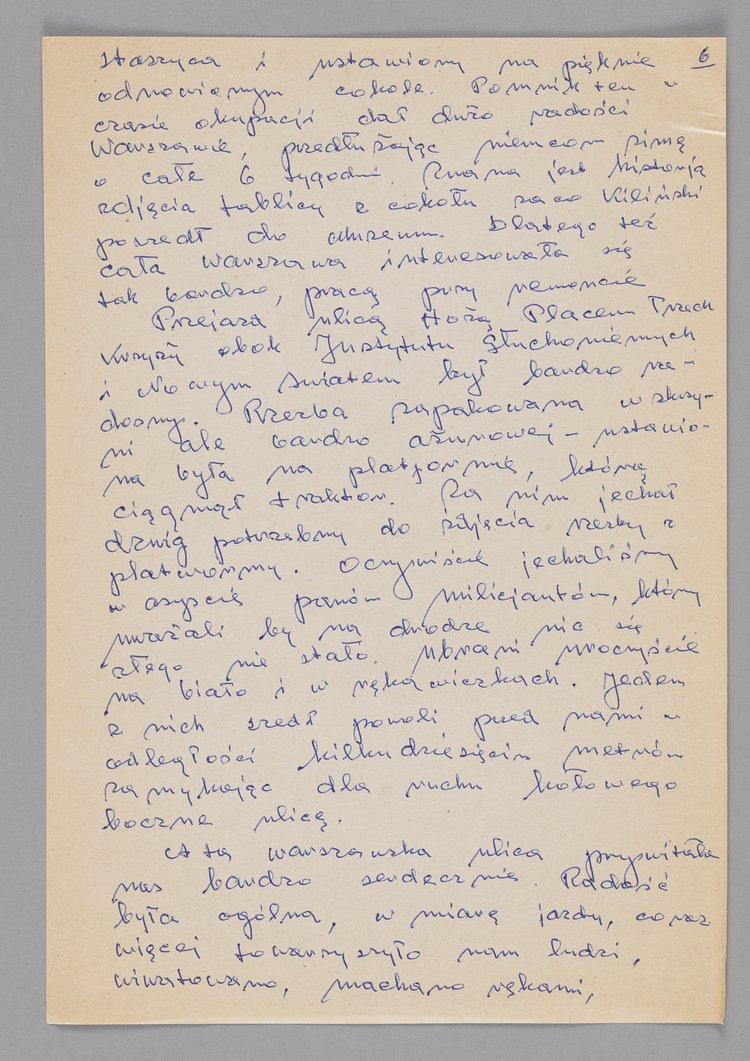 6
Staszyca i ustawiony na pięknie
odnowionym cokole. Pomnik ten w
czasie okupacji dał dużo radości
Warszawie, przedłużając niemcom zimę
o całe 6 tygodni. Znana jest historja
zdjęcia tablicy z cokołu za co Kiliński
poszedł do Muzeum. Dlatego też
cała Warszawa interesowała się
tak bardzo, pracą przy remoncie
Przejazd ulicą Hożą Placem Trzech
Krzyży obok Instytutu Głuchoniemych
i Nowym Światem był bardzo ra-
dosny. Rzeźba zapakowana w skrzy-
ni ale bardzo ażurowej – ustawio-
na była na platformie, którą
ciągnął traktor. Za nim jechał
dźwig potrzebny do zdjęcia rzeźby z
platwormy. Oczywiście jechaliśmy
w asyście panów milicjantów, który
uważali by na drodze nic się
złego nie stało. Ubrani uroczyście
na biało i w rękawiczkach. Jeden
z nich szedł powoli przed nami w
odległości kilkudziesięciu metrów
zamykając dla ruchu kołowego
boczne ulicę.
A ta warszawska ulica przywitała
nas bardzo serdecznie. Radość
była ogólna, w miarę jazdy, coraz
więcej towarzyszyło nam ludzi,
wiwatowano, machano rękami,